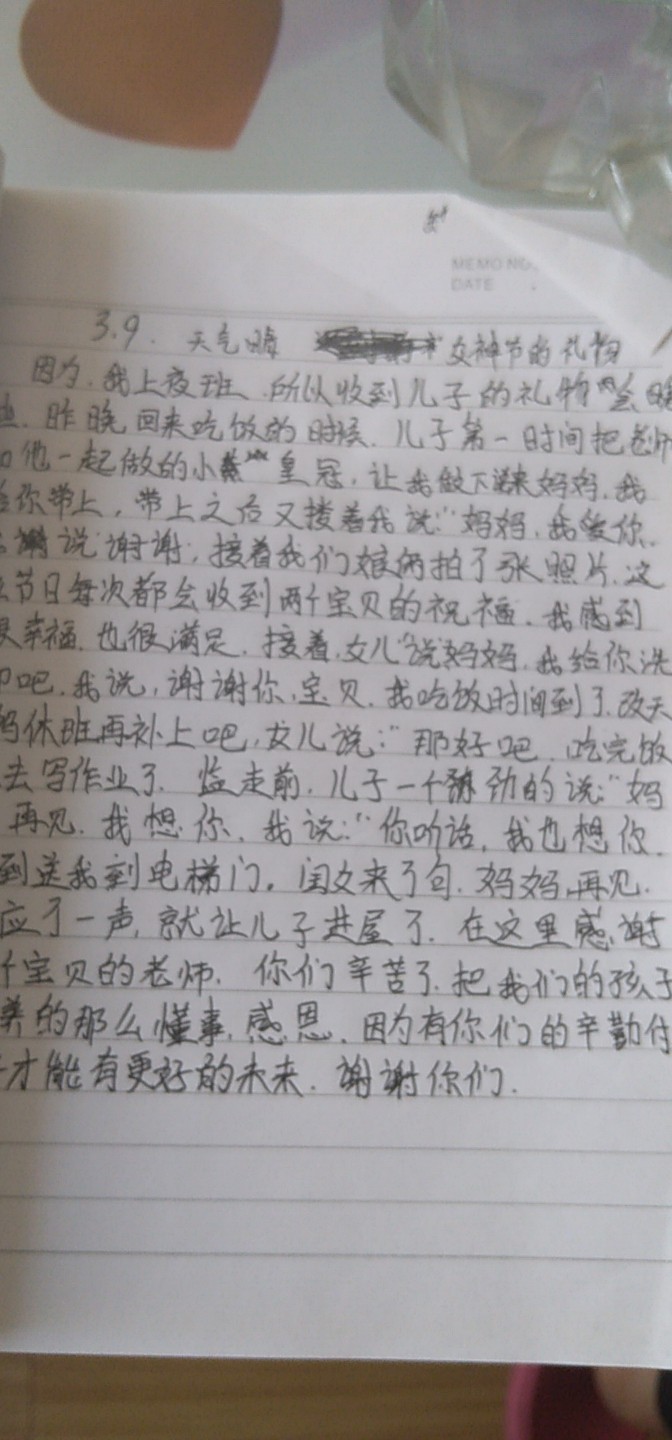 MEMO NO.
DATE
3.9. 天气晴 女神节的礼物
因为,我上夜班,所以收到儿子的礼物会晚
些.昨晚回来吃饭的时候.儿子第一时间把老师
和他一起做的小皇冠,让我做下来妈妈,我
给你带上,带上之后又搂着我说:"妈妈,我爱你.
谢说谢谢,接着我们娘俩拍了张照片.这
节日每次都会收到两个宝贝的祝福.我感到
很幸福.也很满足.接着,女儿"说妈妈,我给你洗
脚吧.我说,谢谢你,宝贝.我吃饭时间到了.改天
妈休班再补上吧,女儿说:"那好吧.吃完饭
去写作业了.临走前.儿子一个劲的说:"妈
再见.我想你.我说:"你听话,我也想你.
到送我到电梯门。闺女来了句.妈妈,再见.
应了一声,就让儿子进屋了.在这里感谢
个宝贝的老师.你们辛苦了.把我们的孩子
养的那么懂事.感恩.因为有你们的辛勤付
才能有更好的未来.谢谢你们.